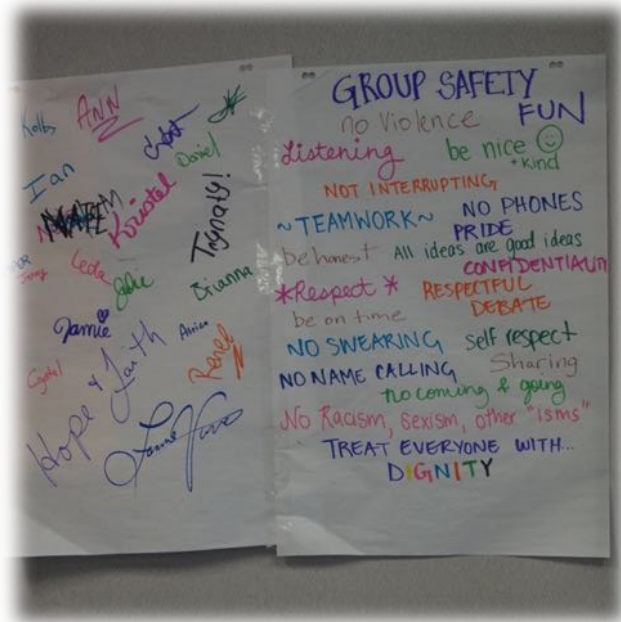 Kolby
ANN
Daniel
Ian
Kristel
Leda
Julie
Brianna
Jamie
Renee
Crystal
Hope & Faith
GROUP SAFETY
FUN
no Violence
Listening
be nice
+ kind
NOT INTERRUPTING
~TEAMWORK~
NO PHONES
PRIDE
be honest
All ideas are good ideas
CONFIDENTIALITY
*Respect*
RESPECTFUL
DEBATE
be on time
NO SWEARING
self respect
NO NAME CALLING
Sharing
no coming & going
No Racism, sexism, other "isms"
TREAT EVERYONE WITH...
DIGNITY